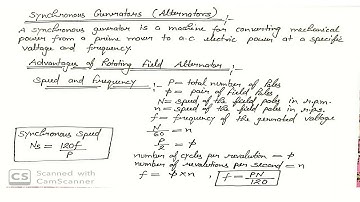 Synchronous Generators (Alternators) :-
A synchronous generator is a machine for converting mechanical
power from a prime mover to a.c electric power at a specific
voltage and frequency.
Advantages of Rotating Field Alternator
Speed and Frequency :-
P = total number of Poles
p = pair of field Poles
N = speed of the field poles in r.p.m.
n = speed of the field poles in r.p.s.
f = frequency of the generated voltage
N/60 = n
P/2 = p
Synchronous Speed
Ns = 120f/P
number of cycles per revolution = p
number of revolutions per second = n
f = p x n ; f = PN/120
CS Scanned with
CamScanner